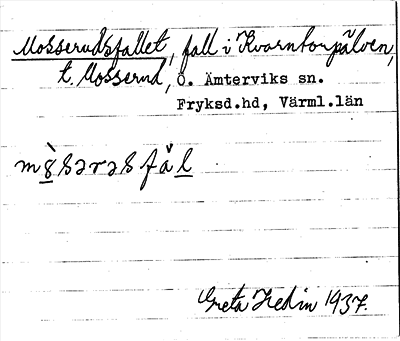 Mosserudsfallet, fall i Kvarntorpälven,
t. Mosserud, Ö. Ämterviks sn.
Fryksd.hd, Värml.län
Greta Hedin 1937.